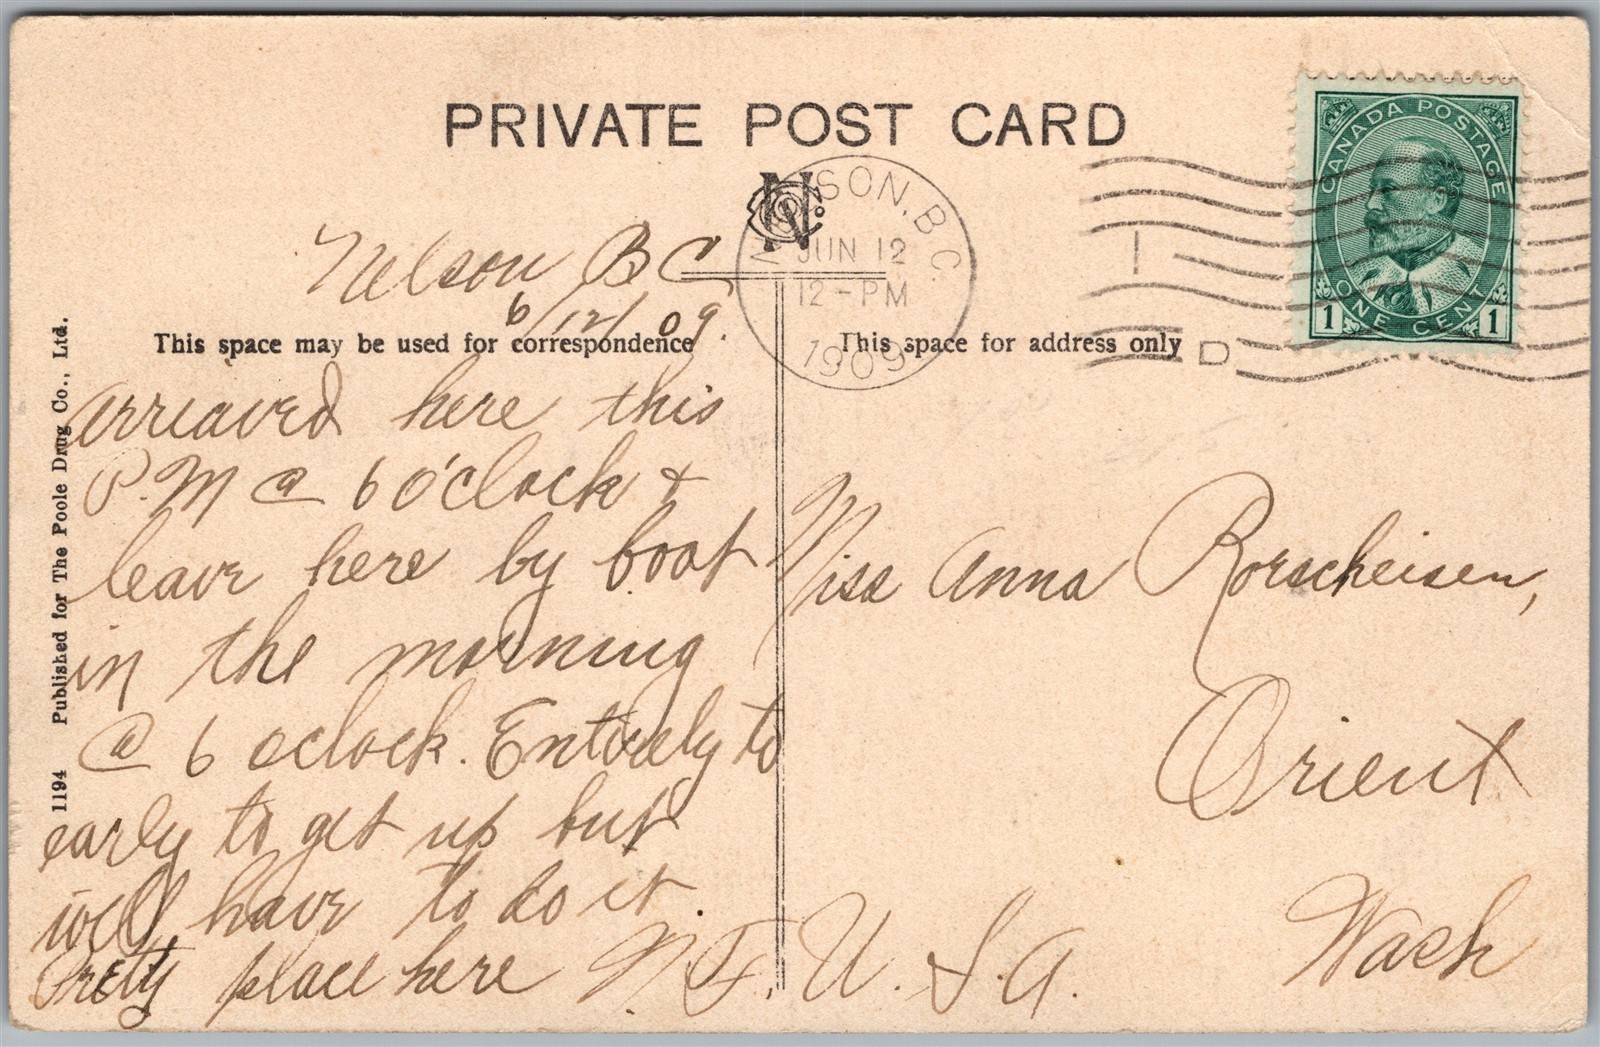 PRIVATE POST CARD
CANADA POSTAGE
ONE CENT
1 1
NELSON, B.C.
JUN 12
12-PM
1909
D
Nelson B C
6/12/09.
This space may be used for correspondence
This space for address only
arriaved here this
P.M @ 6 o'clock &
leave here by boat
in the morning
@ 6 oclock. Entirely to
early to get up but
will have to do it.
Pretty place here N.F.
Miss Anna Rorscheisen,
Orient
Wash
U.S.A.
1194 Published for The Poole Drug Co., Ltd.